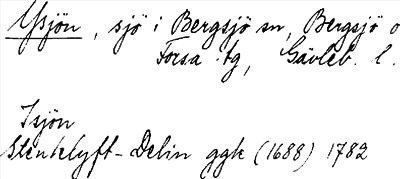 Ysjön, sjö i Bergsjö sn, Bergsjö o
Forsa tg, Gävleb. l.
Isjön
Stenkelyft-Delin ggk (1688) 1782